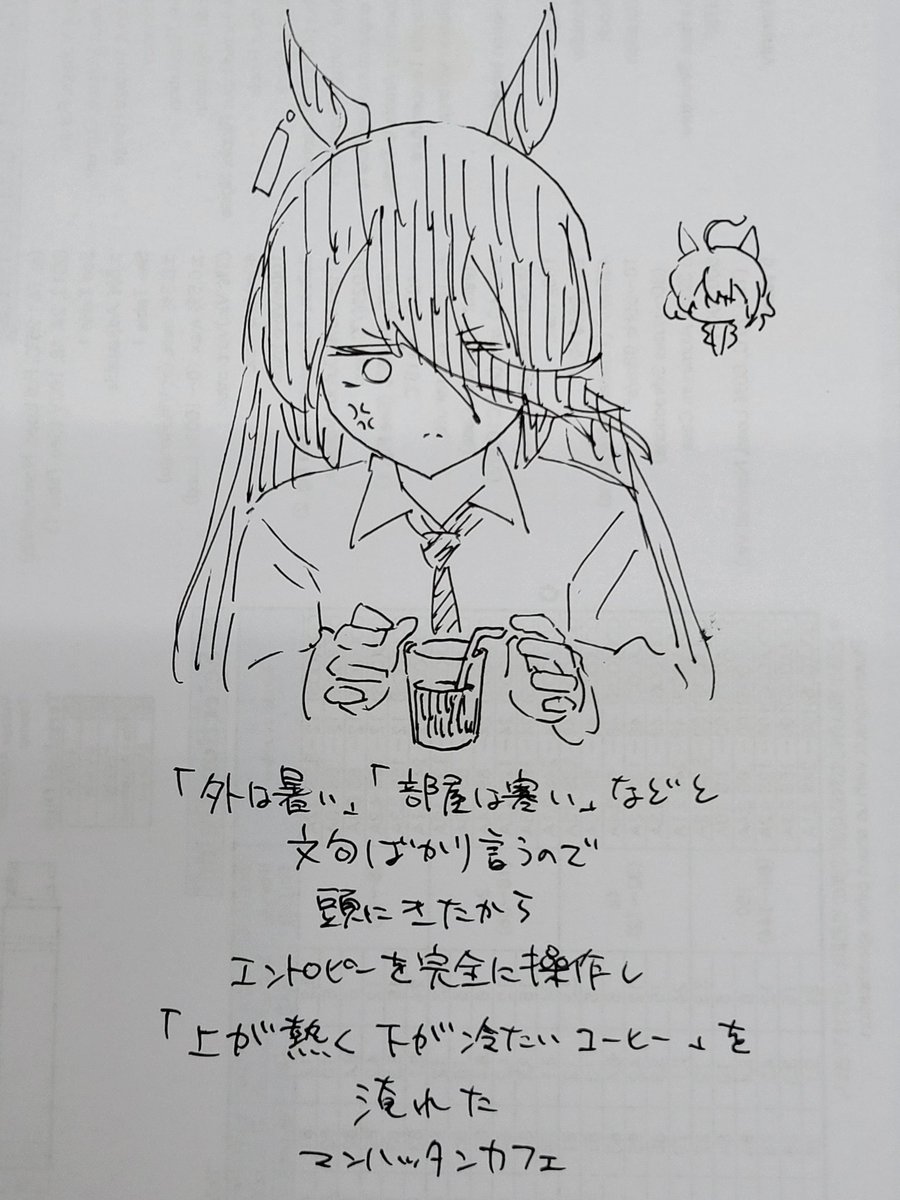 「外は暑い」「部屋は寒い」などと
文句ばかり言うので
頭にきたから
エントロピーを完全に操作し
「上が熱く下が冷たいコーヒー」を
淹れた
マンハッタンカフェ